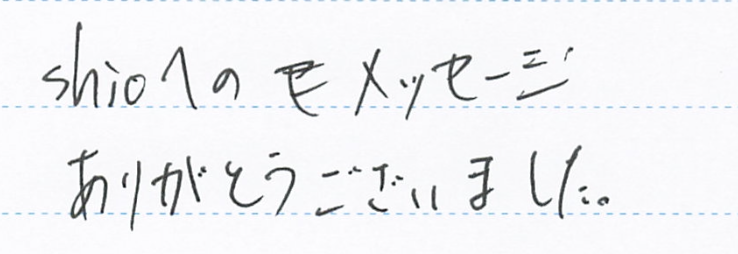 shioへのメッセージ
ありがとうございました。